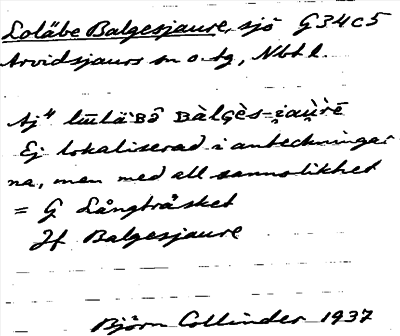 Loläbe Balgesjaure, sjö G34c5
Arvidsjaurs sn o tg, Nbt l.
Aj⁴ lūlä'Bô̄ BàlGès=i̯aùrē
Ej lokaliserad i anteckningar
na, men med all sannolikhet
= G Långträsket
Jf Balgesjaure
Björn Collinder 1937